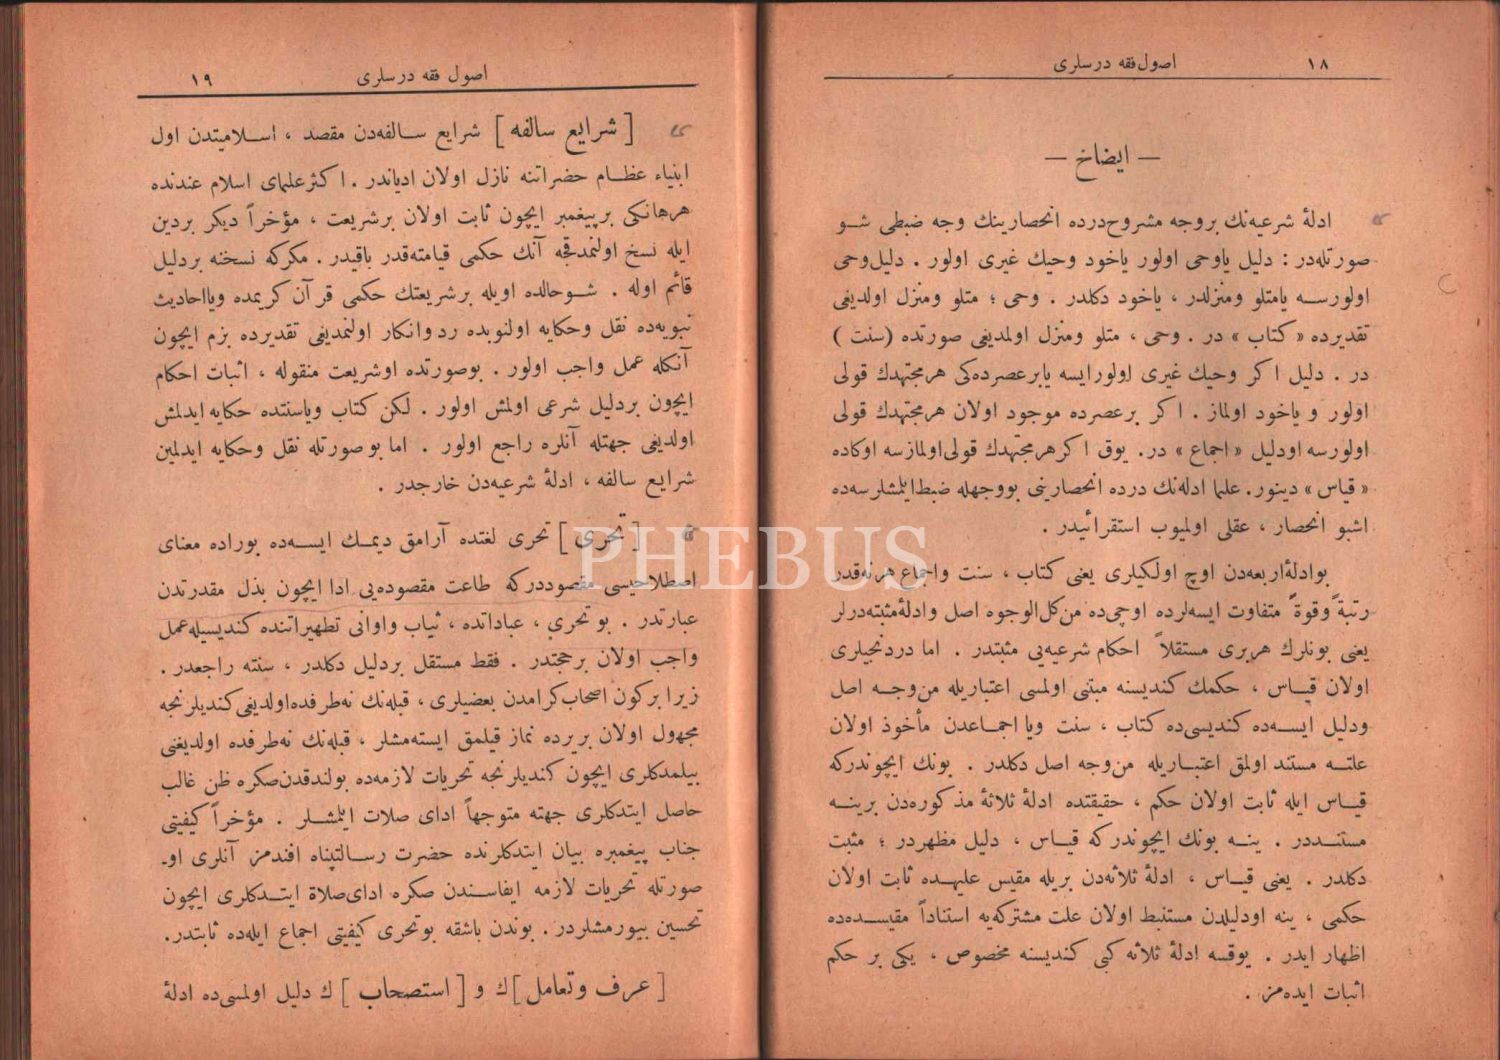 ١٨ اصول فقه درسلری
— ایضاخ —
ادلهٔ شرعیه‌نك بروجه مشروح درده انحصارینك وجه ضبطی شو
صورتله‌در : دلیل یا وحی اولور یاخود وحیك غیری اولور . دلیل وحی
اولورسه یا متلو ومنزلدر ، یاخود دكلدر . وحی ؛ متلو ومنزل اولدیغی
تقدیرده « كتاب » در . وحی ، متلو ومنزل اولمدیغی صورتده (سنت )
در . دلیل اكر وحیك غیری اولورایسه یابرعصرده‌كی هرمجتهدك قولی
اولور و یاخود اولماز . اكر برعصرده موجود اولان هرمجتهدك قولی
اولورسه اودلیل « اجماع » در. یوق اكر هرمجتهدك قولی اولمازسه اوكاده
« قیاس » دینور. علما ادله‌نك درده انحصارینی بووجهله ضبط ایلمشلرسه‌ده
اشبو انحصار ، عقلی اولمیوب استقرائیدر .
بوادلهٔ اربعه‌دن اوچ اولكیلری یعنی كتاب ، سنت واجماع هرنه‌قدر
رتبةً وقوةً متفاوت ایسه‌لرده اوچی‌ده من كل الوجوه اصل وادلهٔ مثبته‌درلر
یعنی بونلرك هربری مستقلاً احكام شرعیه‌یی مثبتدر . اما دردنجیلری
اولان قیاس ، حكمك كندیسنه مبتنی اولمسی اعتباریله من وجه اصل
ودلیل ایسه‌ده كندیسی‌ده كتاب ، سنت ویا اجماعدن مأخوذ اولان
علته مستند اولمق اعتباریله من وجه اصل دكلدر . بونك ایچوندركه
قیاس ایله ثابت اولان حكم ، حقیقتده ادلهٔ ثلاثهٔ مذكوره‌دن برینه
مستنددر . ینه بونك ایچوندركه قیاس ، دلیل مظهردر ؛ مثبت
دكلدر . یعنی قیاس ، ادلهٔ ثلاثه‌دن بریله مقیس علیهده ثابت اولان
حكمی ، ینه اودلیلدن مستنبط اولان علت مشتركه‌یه استناداً مقیسده‌ده
اظهار ایدر . یوقسه ادلهٔ ثلاثه كبی كندیسنه مخصوص ، یكی بر حكم
اثبات ایده‌مز .
اصول فقه درسلری ١٩
[ شرایع سالفه ] شرایع سالفه‌دن مقصد ، اسلامیتدن اول
ابنیاء عظام حضراتنه نازل اولان ادیاندر . اكثر علمای اسلام عندنده
هرهانكی بر پیغمبر ایچون ثابت اولان برشریعت ، مؤخراً دیكر بردین
ایله نسخ اولنمدقجه آنك حكمی قیامته‌قدر باقیدر . مكركه نسخنه بردلیل
قائم اوله . شوحالده اویله برشریعتك حكمی قرآن كریمده ویااحادیث
نبویه‌ده نقل وحكایه اولنوبده رد وانكار اولنمدیغی تقدیرده بزم ایچون
آنكله عمل واجب اولور . بوصورتده اوشریعت منقوله ، اثبات احكام
ایچون بردلیل شرعی اولمش اولور . لكن كتاب ویاسنتده حكایه ایدلمش
اولدیغی جهتله آنلره راجع اولور . اما بوصورتله نقل وحكایه ایدلمین
شرایع سالفه ، ادلهٔ شرعیه‌دن خارجدر .
[ تحری ] تحری لغتده آرامق دیمك ایسه‌ده بوراده معنای
اصطلاحیسی مقصوددركه طاعت مقصوده‌یی ادا ایچون بذل مقدرتدن
عبارتدر . بو تحری ، عباداتده ، ثیاب واوانی تطهیراتنده كندیسیله عمل
واجب اولان برحجتدر . فقط مستقل بردلیل دكلدر ، سنته راجعدر .
زیرا بركون اصحاب كرامدن بعضیلری ، قبله‌نك نه‌طرفده اولدیغی كندیلرنجه
مجهول اولان بریرده نماز قیلمق ایسته‌مشلر ، قبله‌نك نه‌طرفده اولدیغنی
بیلمدكلری ایچون كندیلرنجه تحریات لازمه‌ده بولندقدن صكره ظن غالب
حاصل ایتدكلری جهته متوجهاً ادای صلات ایلمشلر . مؤخراً كیفیتی
جناب پیغمبره بیان ایتدكلرنده حضرت رسالتپناه افندمز آنلری او-
صورتله تحریات لازمه ایفاسندن صكره ادای صلاة ایتدكلری ایچون
تحسین بیورمشلردر . بوندن باشقه بوتحری كیفیتی اجماع ایله‌ده ثابتدر.
[ عرف وتعامل ] ك و [ استصحاب ] ك دلیل اولمسی‌ده ادلهٔ
PHEBUS